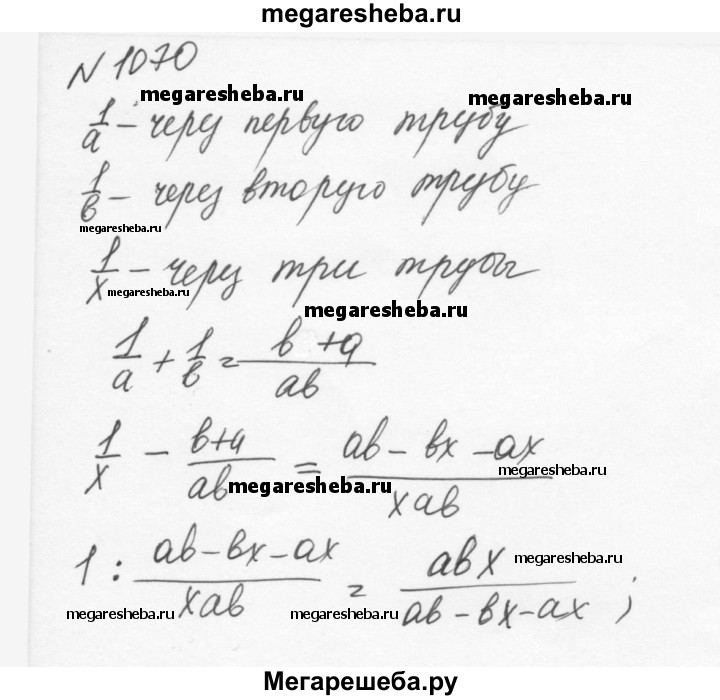 megaresheba.ru
N 1070
megaresheba.ru megaresheba.ru
1/a - через первую трубу
1/b - через вторую трубу
megaresheba.ru
1/x - через три трубы
megaresheba.ru
megaresheba.ru
1/a + 1/b = b+a/ab
1/x - b+a/ab = ab - bx - ax/xab
megaresheba.ru
megaresheba.ru
1 : ab - bx - ax/xab = abx/ab - bx - ax ;
megaresheba.ru
megaresheba.ru megaresheba.ru
Мегарешеба.ру